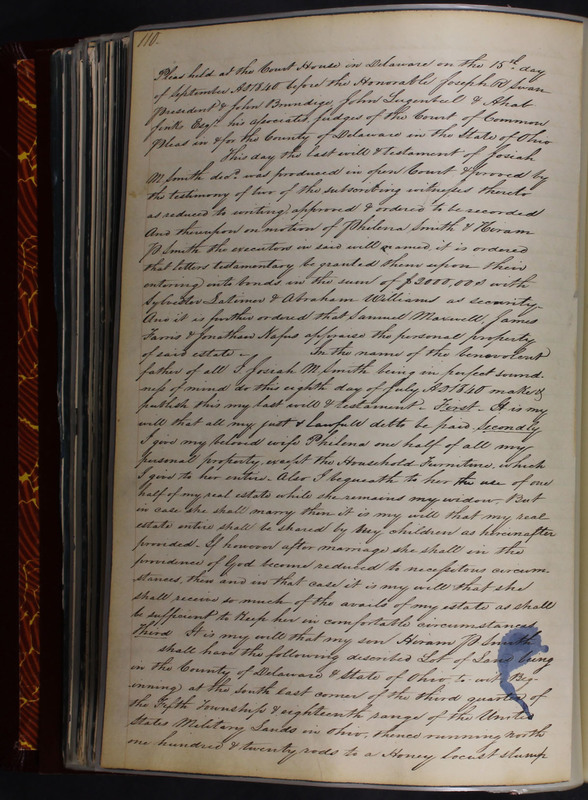 110.
Pleas held at the Court House in Delaware on the 15th day
of September AD 1840 before the Honorable Joseph R Swan
President & John Brundige, John Lugenbeel & Ahab
Jinks Esqrs his associated judges of the Court of Common
Pleas in & for the County of Delaware in the State of Ohio
This day the last will & testament of Josiah
M. Smith decd. was produced in open Court & prooved by
the testimony of two of the subscribing witnesses thereto
as reduced to writing) approved & ordered to be recorded
And thereupon on motion of Philena Smith & Hiram
P Smith the executors in said will named it is ordered
that letters testamentary be granted them upon their
entering into bonds in the sum of $2000,00 with
Sylvester Latimer & Abraham Williams as security
And it is further ordered that Samuel Maxwell, James
Farris & Jonathan Nafus appraise the personal property
of said estate - In the name of the benevolent
father of all I Josiah M. Smith being in perfect sound-
ness of mind do this eighth day of July AD 1840 make &
publish this my last will & testament - First - It is my
will that all my just & lawfull debts be paid Secondly
I give my beloved wife Philena one half of all my
personal property, except the Household Furniture, which
I give to her entire. Also I bequeath to her the use of one
half of my real estate while she remains my widow. But
in case she shall marry then it is my will that my real
estate entire shall be shared by my children as hereinafter
provided. If however after marriage she shall in the
providence of God become reduced to necessitous circum-
stances, then and in that case it is my will that she
shall receive so much of the avails of my estate as shall
be sufficient to keep her in comfortable circumstances
Third It is my will that my son Hiram P Smith
shall have the following described Lot of Land lying
in the County of Delaware & State of Ohio to wit Beg-
inning at the South East corner of the third quarter of
the Fifth Township & eighteenth range of the United
States Military Lands in Ohio, thence running north
one hundred & twenty rods to a Honey locust stump